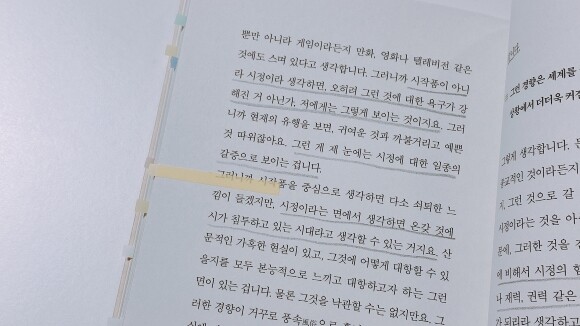 뿐만 아니라 게임이라든지 만화, 영화나 텔레비전 같은
것에도 스며 있다고 생각합니다. 그러니까 시작품이 아니
라 시정이라 생각하면, 오히려 그런 것에 대한 욕구가 강
해진 거 아닌가, 저에게는 그렇게 보이는 것이지요. 그러
니까 현재의 유행을 보면, 귀여운 것과 까불거리고 예쁜
것 따위잖아요. 그런 게 제 눈에는 시정에 대한 일종의
갈증으로 보이는 겁니다.
그러니까 시작품을 중심으로 생각하면 다소 쇠퇴한 느
낌이 들겠지만, 시정이라는 면에서 생각하면 온갖 것에
시가 침투하고 있는 시대라고 생각할 수 있는 거지요. 산
문적인 가혹한 현실이 있고, 그것에 어떻게 대항할 수 있
을지를 모두 본능적으로 느끼고 대항하고자 하는 그런
면이 있는 겁니다. 물론 그것을 낙관할 수는 없지만요. 그
러한 경향이 거꾸로 풍속風俗으로
그런 경향은 세계를
상황에서 더더욱 커진
그렇게 생각합니다.
종교적인 것이라든지
지, 그런 것으로 갈
시정이라는 것을 아
문에, 그러한 것을
에 비해서 시정의
나 재력, 권력 같은
가 되리라 생각하고